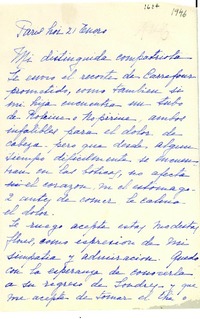 1946
Paris hoi 21 Enero
Mi distinguida compatriota
Le envio el recorte de Carrefour
prometido, como tambien si
mi hija encuentra un tubo
de o Aspirina, ambos
infalibles para el dolor de
cabeza, pero que desde algun
tiempo dificilmente se encuen-
tran en las boticas, no afecta
ni el corazon, ni el estomago
2 antes de comer le calma
el dolor.
Le ruego acepte estas modestas
flores, como espresion de mi
simpatia y admiracion. Quedo
con la esperanza de
a su regreso de Londres, y que
me acepte de tomar el thé o